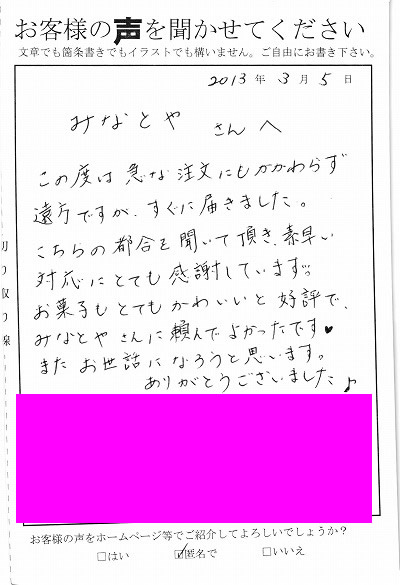 お客様の声を聞かせてください
文章でも箇条書きでもイラストでも構いません。ご自由にお書き下さい。
2013年3月5日
みなとや さんへ
この度は急な注文にもかかわらず
遠方ですが、すぐに届きました。
こちらの都合を聞いて頂き、素早い
対応にとても感謝しています!!
お菓子もとてもかわいいと好評で、
みなとやさんに頼んでよかったです♥
またお世話になろうと思います。
ありがとうございました♪
切り取り線
お客様の声をホームページ等でご紹介してよろしいでしょうか？
□はい ☑匿名で □いいえ